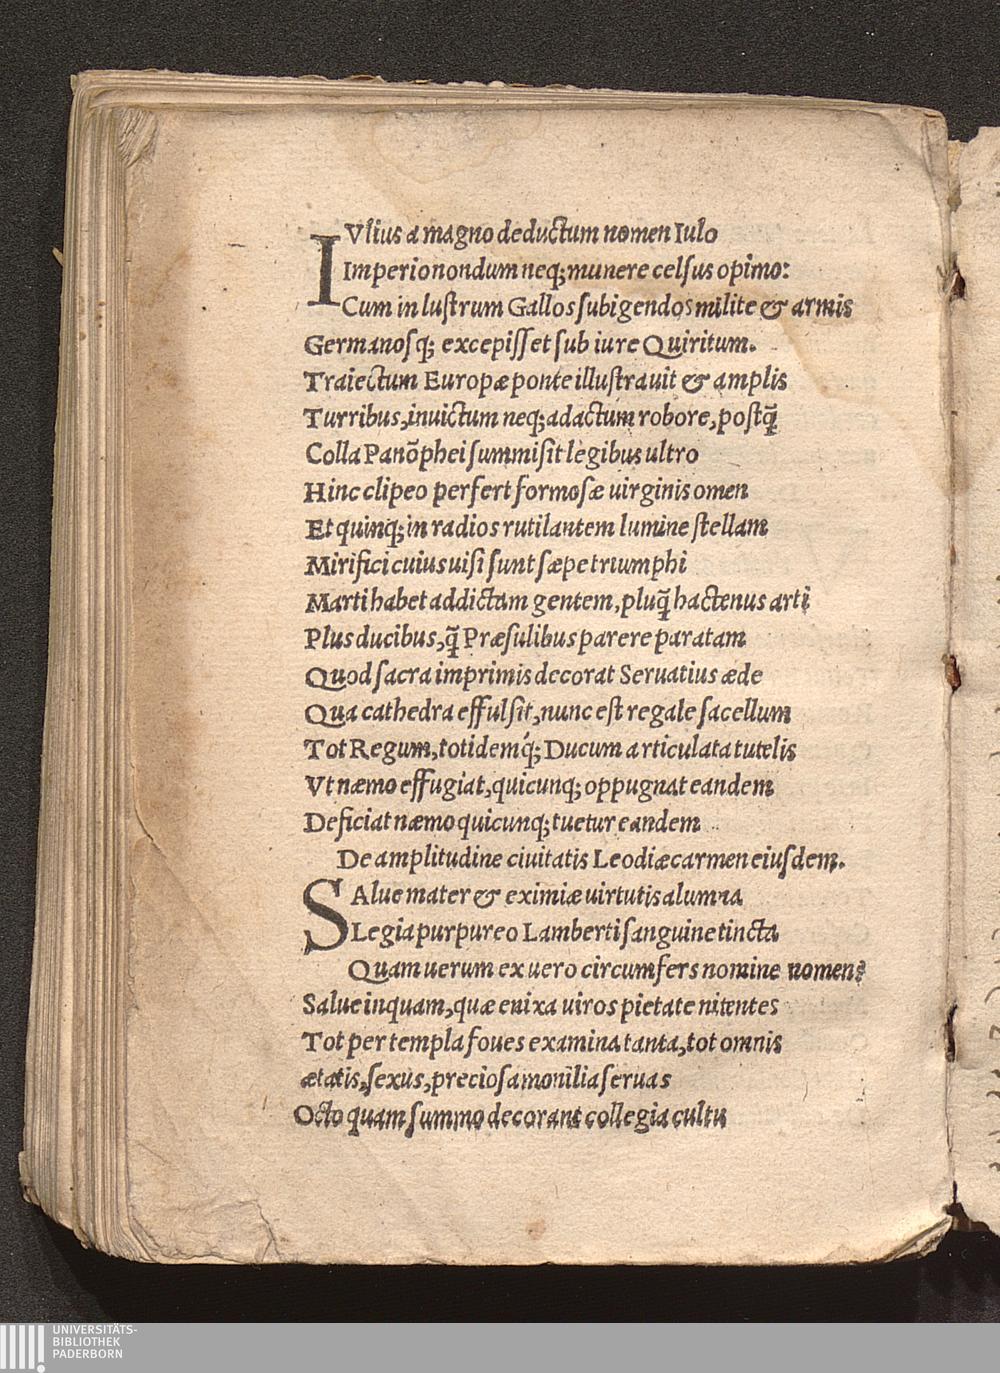 IVlius a magno deductum nomen Iulo
Imperio nondum neq; munere celsus opimo:
Cum in lustrum Gallos subigendos milite & armis
Germanosq; excepisset sub iure Quiritum.
Traiectum Europæ ponte illustrauit & amplis
Turribus, inuictum neq; adactum robore, postq̃
Colla Panõphei summisit legibus ultro
Hinc clipeo perfert formosæ uirginis omen
Et quinq; in radios rutilantem lumine stellam
Mirifici cuius uisi sunt sæpe triumphi
Marti habet addictam gentem, pluq̃ hactenus arti
Plus ducibus, q̃ Præsulibus parere paratam
Quod sacra imprimis decorat Seruatius æde
Qua cathedra effulsit, nunc est regale sacellum
Tot Regum, totidemq́; Ducum articulata tutelis
Vt næmo effugiat, quicunq; oppugnat eandem
Deficiat næmo quicunq; tuetur eandem
De amplitudine ciuitatis Leodiæ carmen eiusdem.
SAlue mater & eximiæ uirtutis alumna
Legia purpureo Lamberti sanguine tincta
Quam uerum ex uero circumfers nomine nomen?
Salue inquam, quæ enixa uiros pietate nitentes
Tot per templa foues examina tanta, tot omnis
ætatis, sexus, preciosa monilia seruas
Octo quam summo decorant collegia cultu
UNIVERSITÄTS-
BIBLIOTHEK
PADERBORN